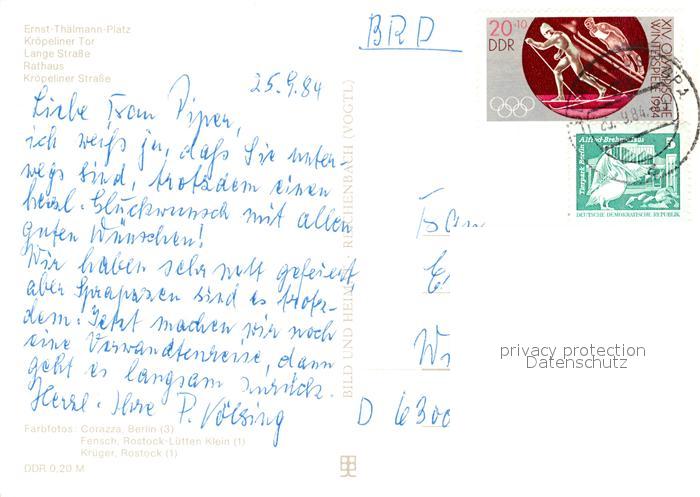 Ernst-Thälmann-Platz
Kröpeliner Tor
Lange Straße
Rathaus
Kröpeliner Straße
25.9.84
Liebe Frau Piper,
ich weiß ja, daß Sie unter-
wegs sind, trotzdem einen
herzl. Glückwunsch mit allen
guten Wünschen!
Wir haben sehr nett gefeiert,
aber Strapazen sind es trotz-
dem. Jetzt machen wir noch
eine Verwandtenreise, dann
geht es langsam zurück.
Herzl. Ihre P. Völsing
Farbfotos: Corazza, Berlin (3)
Fensch, Rostock-Lütten Klein (1)
Krüger, Rostock (1)
DDR 0,20 M
BILD UND HEIMAT REICHENBACH (VOGTL)
BRD
20+10
DDR
XIV. OLYMPISCHE
WINTERSPIELE 1984
9.84
Alfred-Brehm-Haus
Tierpark Berlin
5
DEUTSCHE DEMOKRATISCHE REPUBLIK
Frau
D 6300
privacy protection
Datenschutz